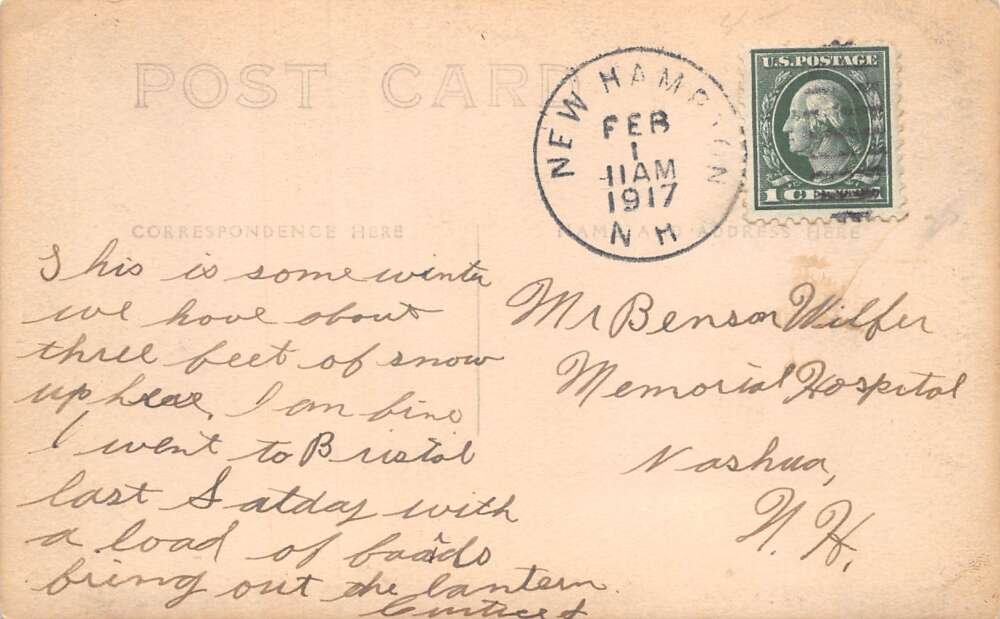 POST CARD
NEW HAMPTON
FEB
1
11AM
1917
N H
U.S. POSTAGE
1 CENT 1
CORRESPONDENCE HERE
NAME AND ADDRESS HERE
This is some winter
we have about
three feet of snow
up hear, I am fine
I went to Bristol
last Satday with
a load of
bring out the lantern
Mr Benson Wilfer
Memorial Hospital
Nashua,
N. H.